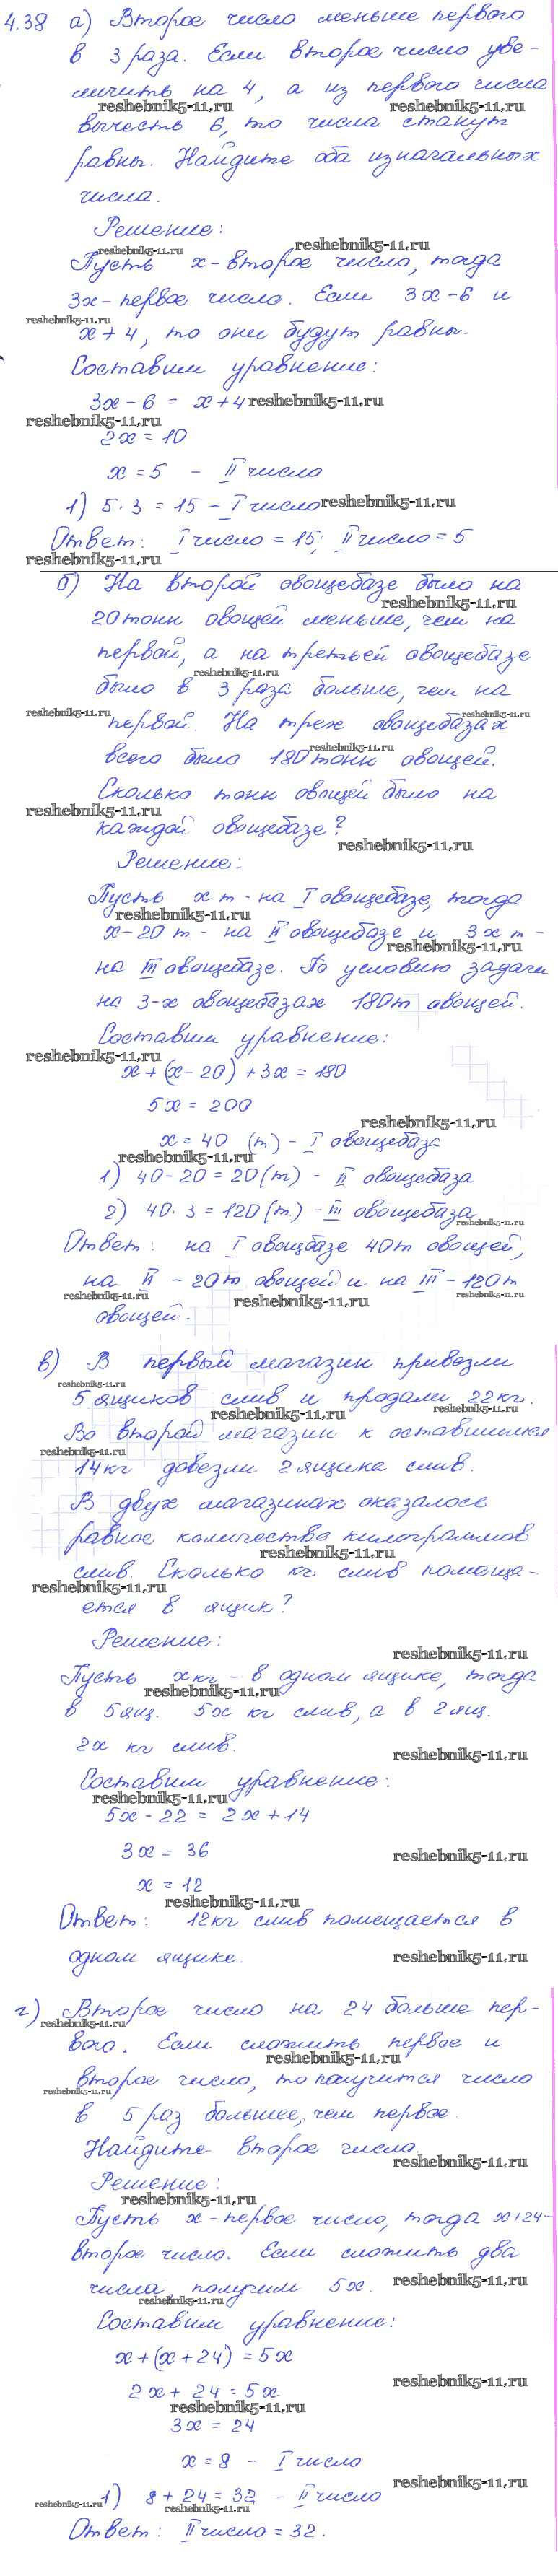 4.38 а) Второе число меньше первого
в 3 раза. Если второе число уве-
личить на 4, а из первого числа
reshebnik5-11,ru reshebnik5-11,ru
вычесть 6, то числа станут
равны. Найдите оба изначальных
числа.
Решение:
reshebnik5-11.ru reshebnik5-11,ru
Пусть х - второе число, тогда
3х - первое число. Если 3х-6 и
reshebnik5-11.ru
х+4, то они будут равны.
Составим уравнение:
3х - 6 = х+4 reshebnik5-11,ru
reshebnik5-11,ru
2х = 10
х = 5 - II число
1) 5·3 = 15 - I число reshebnik5-11,ru
Ответ: I число = 15; II число = 5
reshebnik5-11,ru
б) На второй овощебазе было на
reshebnik5-11,ru
20 тонн овощей меньше, чем на
первой, а на третьей овощебазе
reshebnik5-11.ru
было в 3 раза больше, чем на
reshebnik5-11.ru reshebnik5-11.ru
первой. На трех овощебазах
reshebnik5-11.ru
всего было 180 тонн овощей.
Сколько тонн овощей было на
reshebnik5-11,ru
каждой овощебазе?
reshebnik5-11,ru
Решение:
Пусть х т - на I овощебазе, тогда
reshebnik5-11,ru
х-20 т - на II овощебазе и 3х т -
reshebnik5-11,ru
на III овощебазе. По условию задачи
на 3-х овощебазах 180т овощей.
Составим уравнение:
reshebnik5-11,ru
х + (х - 20) + 3х = 180
5х = 200
reshebnik5-11,ru
х = 40 (т) - I овощебаза
reshebnik5-11,ru
1) 40-20 = 20 (т) - II овощебаза
2) 40·3 = 120 (т) - III овощебаза
reshebnik5-11.ru
Ответ: на I овощбазе 40т овощей,
на II - 20т овощей и на III - 120т
reshebnik5-11.ru reshebnik5-11,ru reshebnik5-11.ru
овощей.
в) В первый магазин привезли
reshebnik5-11.ru
5 ящиков слив и продали 22 кг.
reshebnik5-11,ru reshebnik5-11.ru
Во второй магазин к оставшимся
reshebnik5-11.ru
14 кг довезли 2 ящика слив.
В двух магазинах оказалось
равное количество килограммов
reshebnik5-11,ru
слив. Сколько кг слив помеща-
reshebnik5-11,ru
ется в ящик?
Решение:
reshebnik5-11,ru
Пусть х кг - в одном ящике, тогда
reshebnik5-11,ru
в 5 ящ. 5х кг слив, а в 2 ящ.
2х кг слив.
reshebnik5-11,ru
Составим уравнение:
reshebnik5-11,ru
5х - 22 = 2х + 14
3х = 36
reshebnik5-11,ru
х = 12
reshebnik5-11,ru
Ответ: 12 кг слив помещается в
одном ящике.
reshebnik5-11,ru
г) Второе число на 24 больше пер-
reshebnik5-11.ru
вого. Если сложить первое и
reshebnik5-11,ru
второе число, то получится число
reshebnik5-11.ru
в 5 раз большее, чем первое.
Найдите второе число.
reshebnik5-11,ru
Решение:
reshebnik5-11,ru
Пусть х - первое число, тогда х+24 -
второе число. Если сложить два
числа, получим 5х. reshebnik5-11,ru
reshebnik5-11.ru
Составим уравнение:
х + (х + 24) = 5х
reshebnik5-11,ru
2х + 24 = 5х
reshebnik5-11,ru
3х = 24
х = 8 - I число
reshebnik5-11,ru
1) 8 + 24 = 32 - II число
reshebnik5-11.ru reshebnik5-11.ru
Ответ: II число = 32.